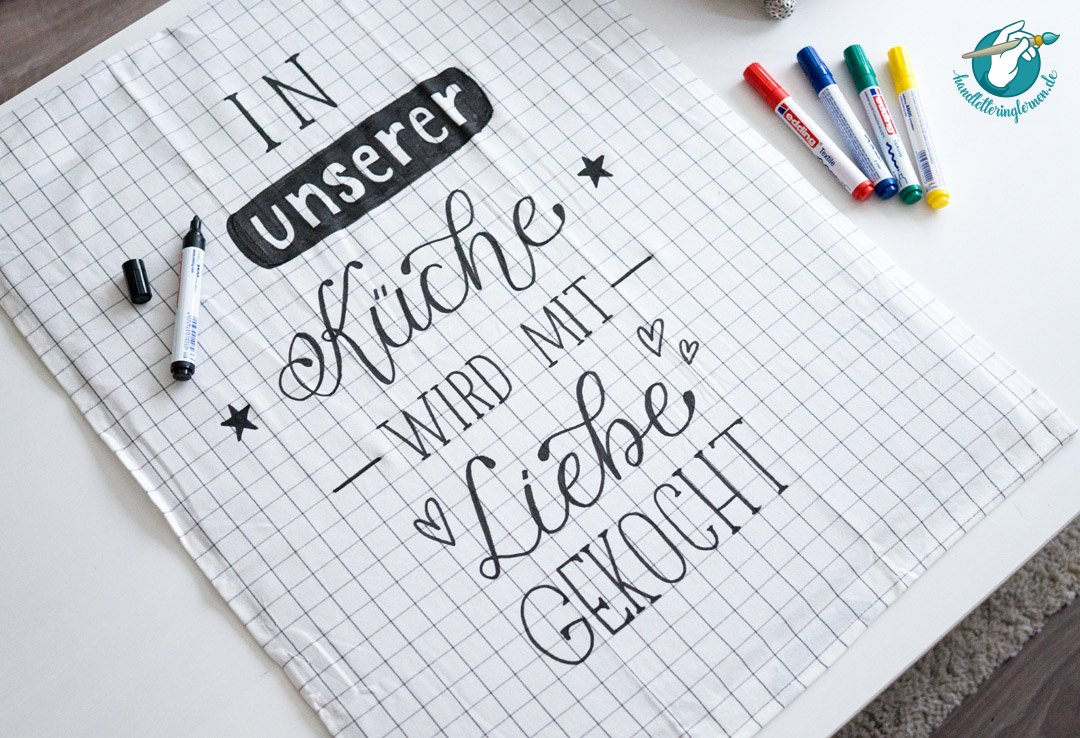 IN
unserer
Küche
WIRD MIT
Liebe
GEKOCHT
edding
Textile
edding
handletteringlernen.de